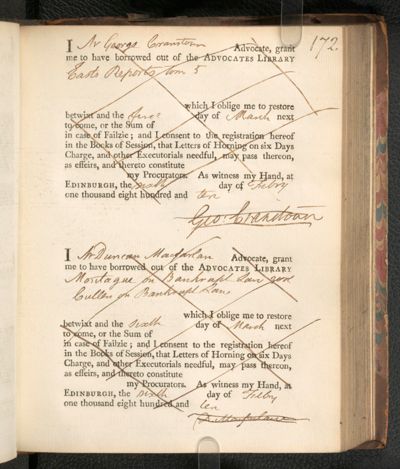 172
I Mr George Cranstoun Advocate, grant
me to have borrowed out of the ADVOCATES LIBRARY
Easts Reports tom 5
which I oblige me to restore
betwixt and the day of March next
to come, or the Sum of
in case of Failzie ; and I consent to the registration hereof
in the Books of Session, that Letters of Horning on six Days
Charge, and other Executorials needful, may pass thereon,
as effeirs, and thereto constitute
my Procurators. As witness my Hand, at
EDINBURGH, the sixth day of Febry
one thousand eight hundred and ten
Geo. Cranstoun
I Mr Duncan Macfarlan Advocate, grant
me to have borrowed out of the ADVOCATES LIBRARY
Montague on Bankrupt Law and
Cullen on Bankrupt Law
which I oblige me to restore
betwixt and the sixth day of March next
to come, or the Sum of
in case of Failzie ; and I consent to the registration hereof
in the Books of Session, that Letters of Horning on six Days
Charge, and other Executorials needful, may pass thereon,
as effeirs, and thereto constitute
my Procurators. As witness my Hand, at
EDINBURGH, the sixth day of Febry
one thousand eight hundred and ten
D. Macfarlane